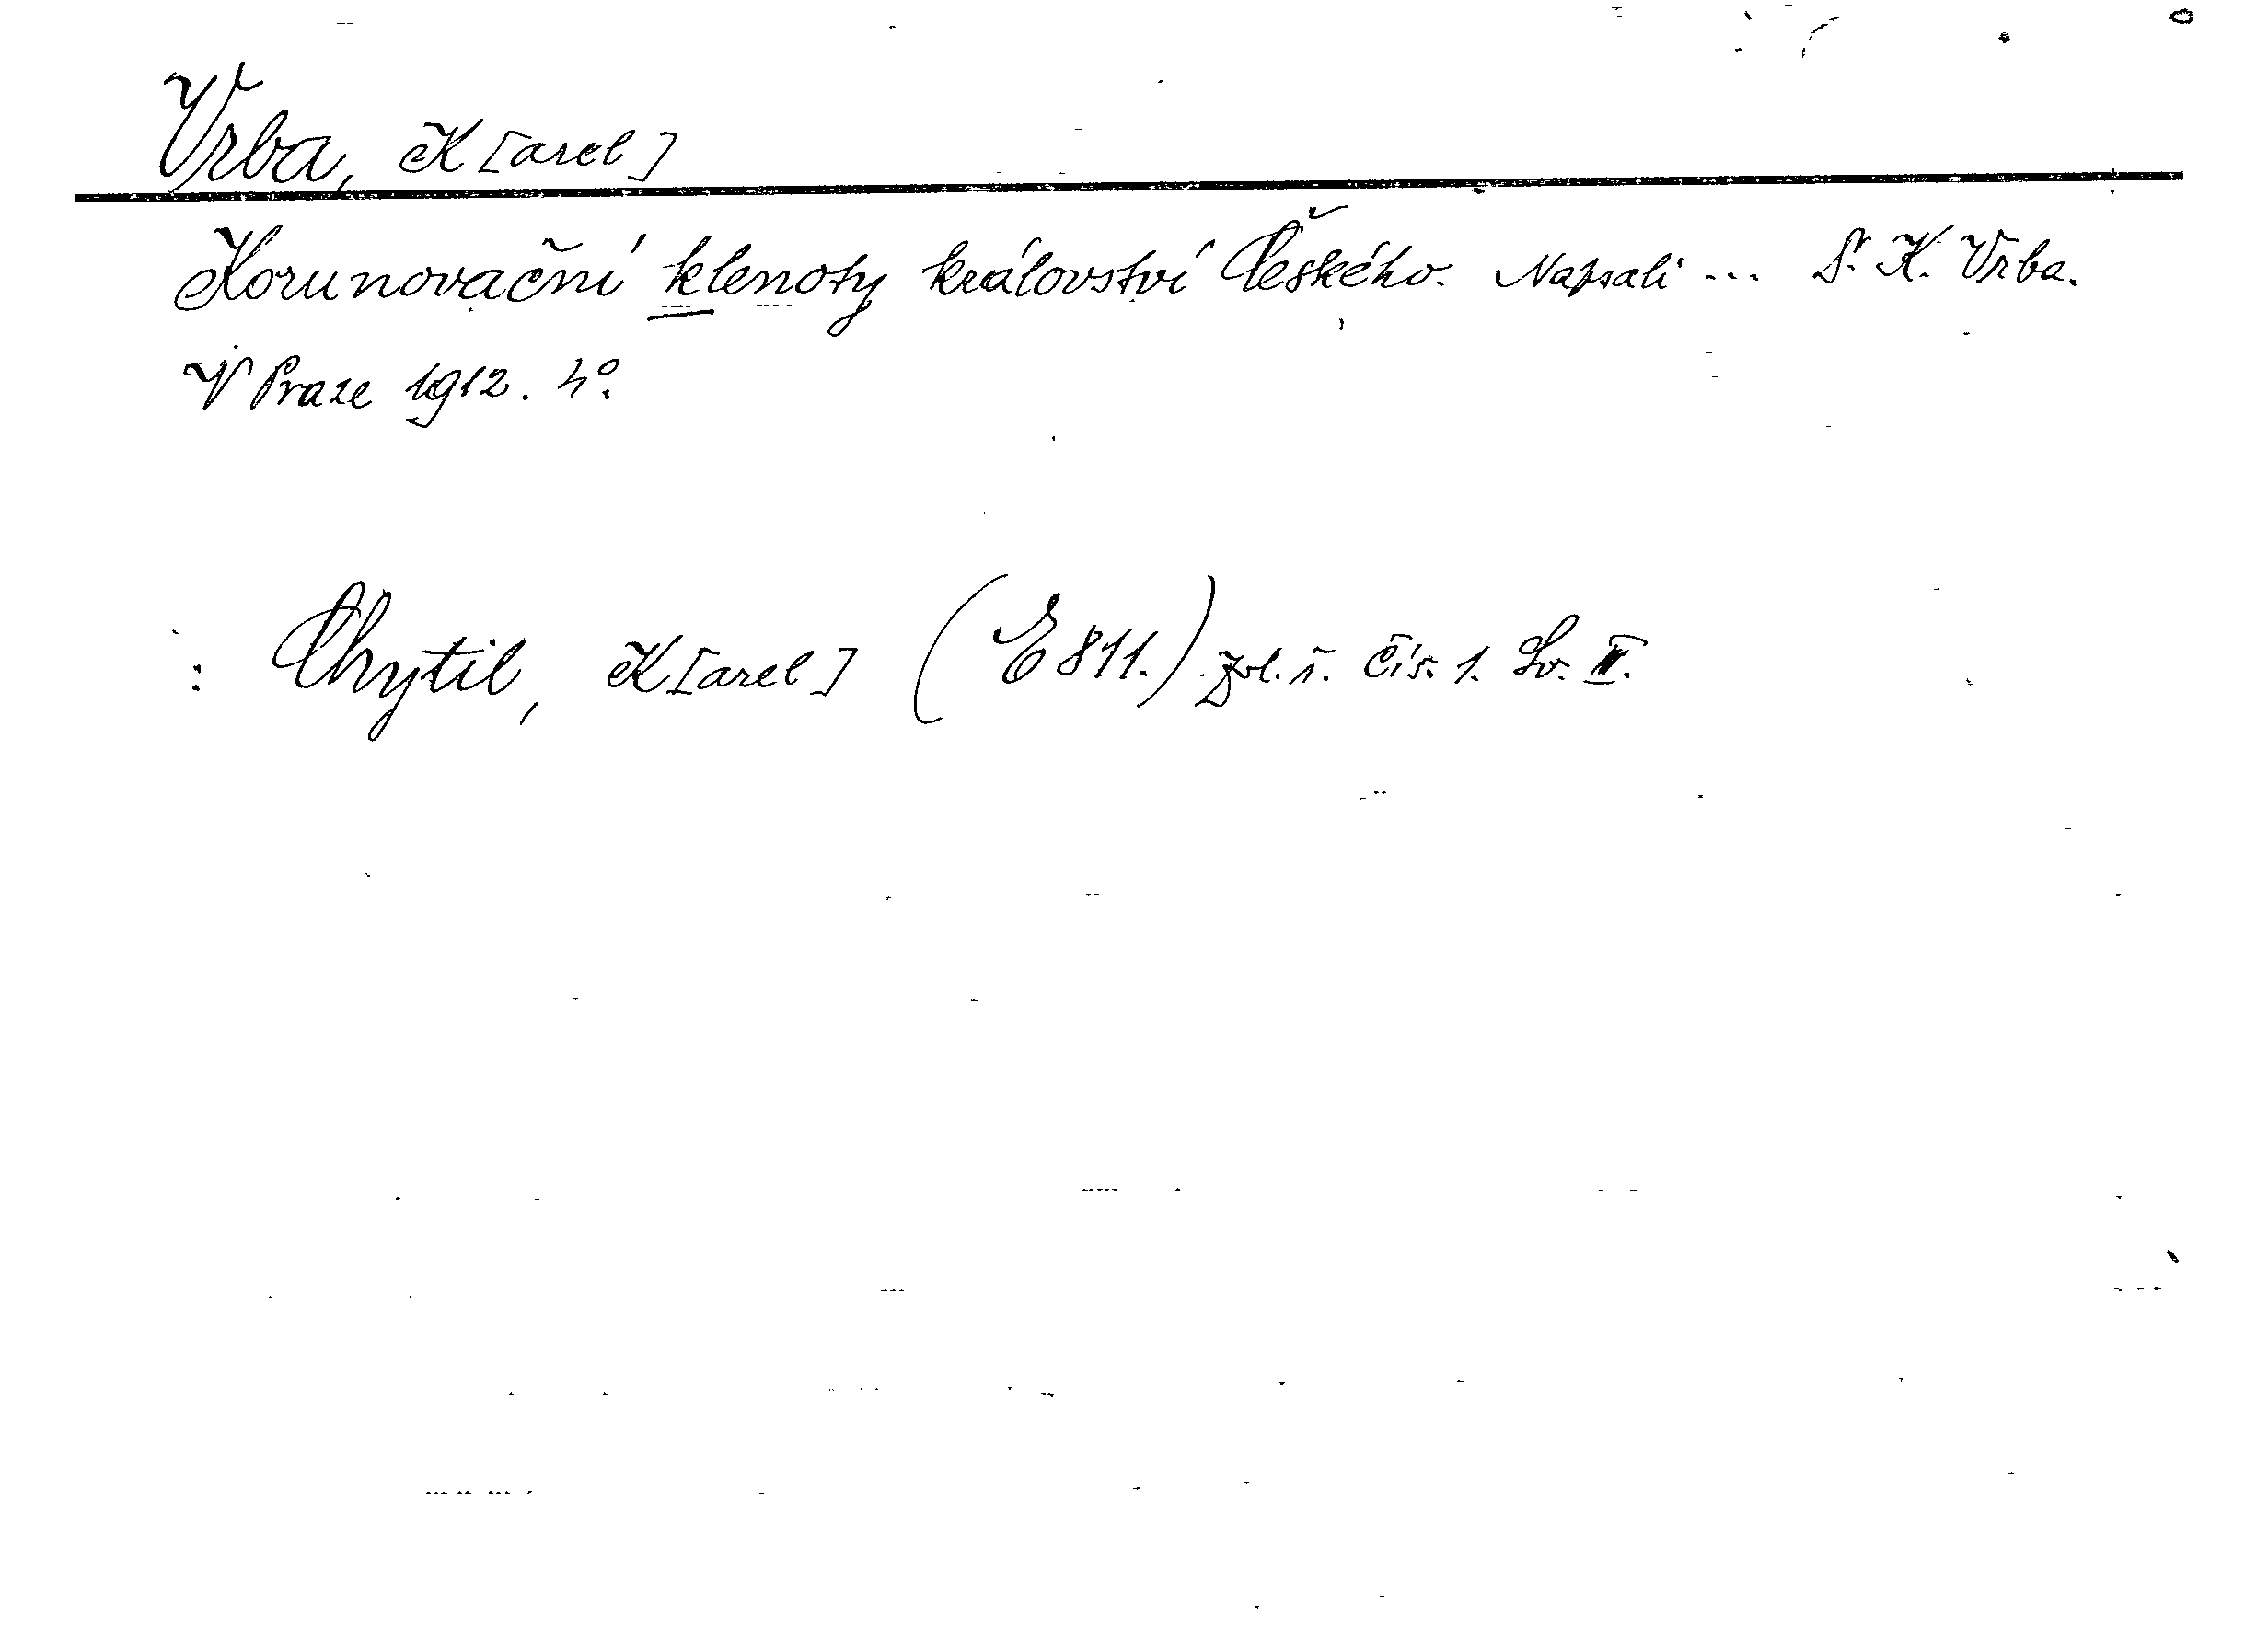 Vrba, K[arel]
Korunovační klenoty království Českého. Napsali ... Dr. K. Vrba.
V Praze 1912. 4°.
: Chytil, K[arel] (E 811.) Zvl. ř. Čís. 1. Sv. II.